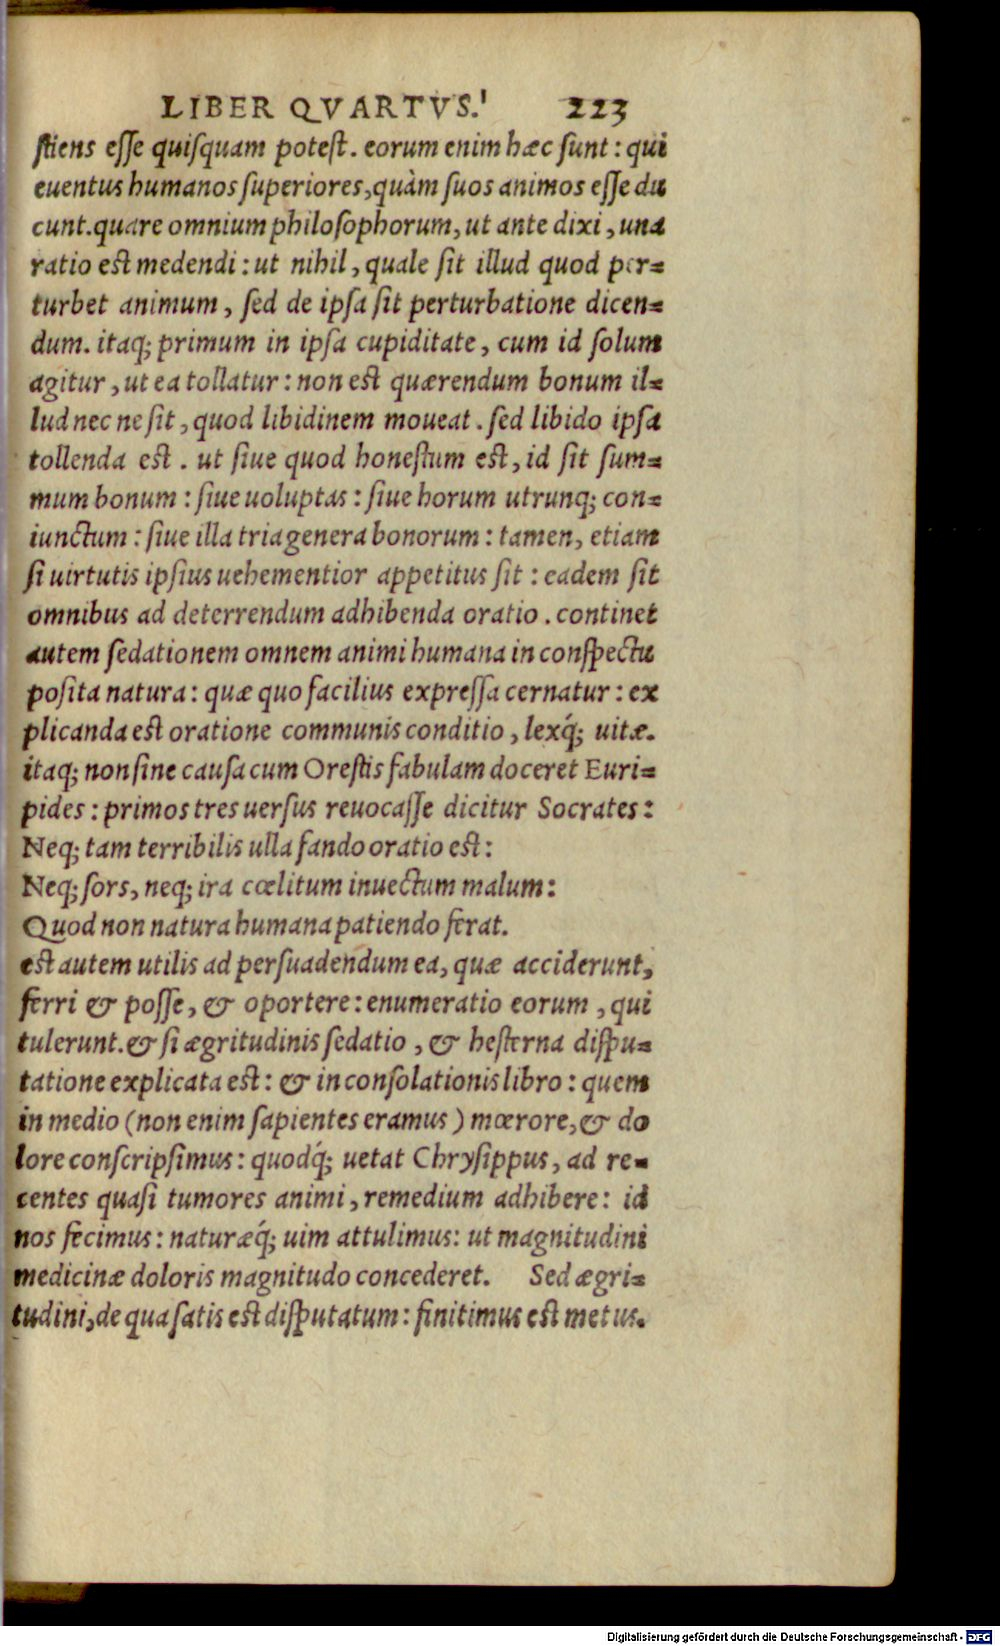 LIBER QVARTVS. 223
stiens esse quisquam potest. eorum enim hæc sunt: qui
euentus humanos superiores, quàm suos animos esse du
cunt. quare omnium philosophorum, ut ante dixi, una
ratio est medendi: ut nihil, quale sit illud quod per-
turbet animum, sed de ipsa sit perturbatione dicen-
dum. itaq; primum in ipsa cupiditate, cum id solum
agitur, ut ea tollatur: non est quærendum bonum il-
lud nec ne sit, quod libidinem moueat. sed libido ipsa
tollenda est. ut siue quod honestum est, id sit sum-
mum bonum: siue uoluptas: siue horum utrunq; con-
iunctum: siue illa tria genera bonorum: tamen, etiam
si uirtutis ipsius uehementior appetitus sit: eadem sit
omnibus ad deterrendum adhibenda oratio. continet
autem sedationem omnem animi humana in conspectu
posita natura: quæ quo facilius expressa cernatur: ex
plicanda est oratione communis conditio, lexq́; uitæ.
itaq; non sine causa cum Orestis fabulam doceret Euri-
pides: primos tres uersus reuocasse dicitur Socrates:
Neq; tam terribilis ulla fando oratio est:
Neq; sors, neq; ira cœlitum inuectum malum:
Quod non natura humana patiendo ferat.
est autem utilis ad persuadendum ea, quæ acciderunt,
ferri & posse, & oportere: enumeratio eorum, qui
tulerunt. & si ægritudinis sedatio, & hesterna dispu-
tatione explicata est: & in consolationis libro: quem
in medio (non enim sapientes eramus) mœrore, & do
lore conscripsimus: quodq́; uetat Chrysippus, ad re-
centes quasi tumores animi, remedium adhibere: id
nos fecimus: naturæq́; uim attulimus: ut magnitudini
medicinæ doloris magnitudo concederet. Sed ægri-
tudini, de qua satis est disputatum: finitimus est metus.
Digitalisierung gefördert durch die Deutsche Forschungsgemeinschaft - DFG